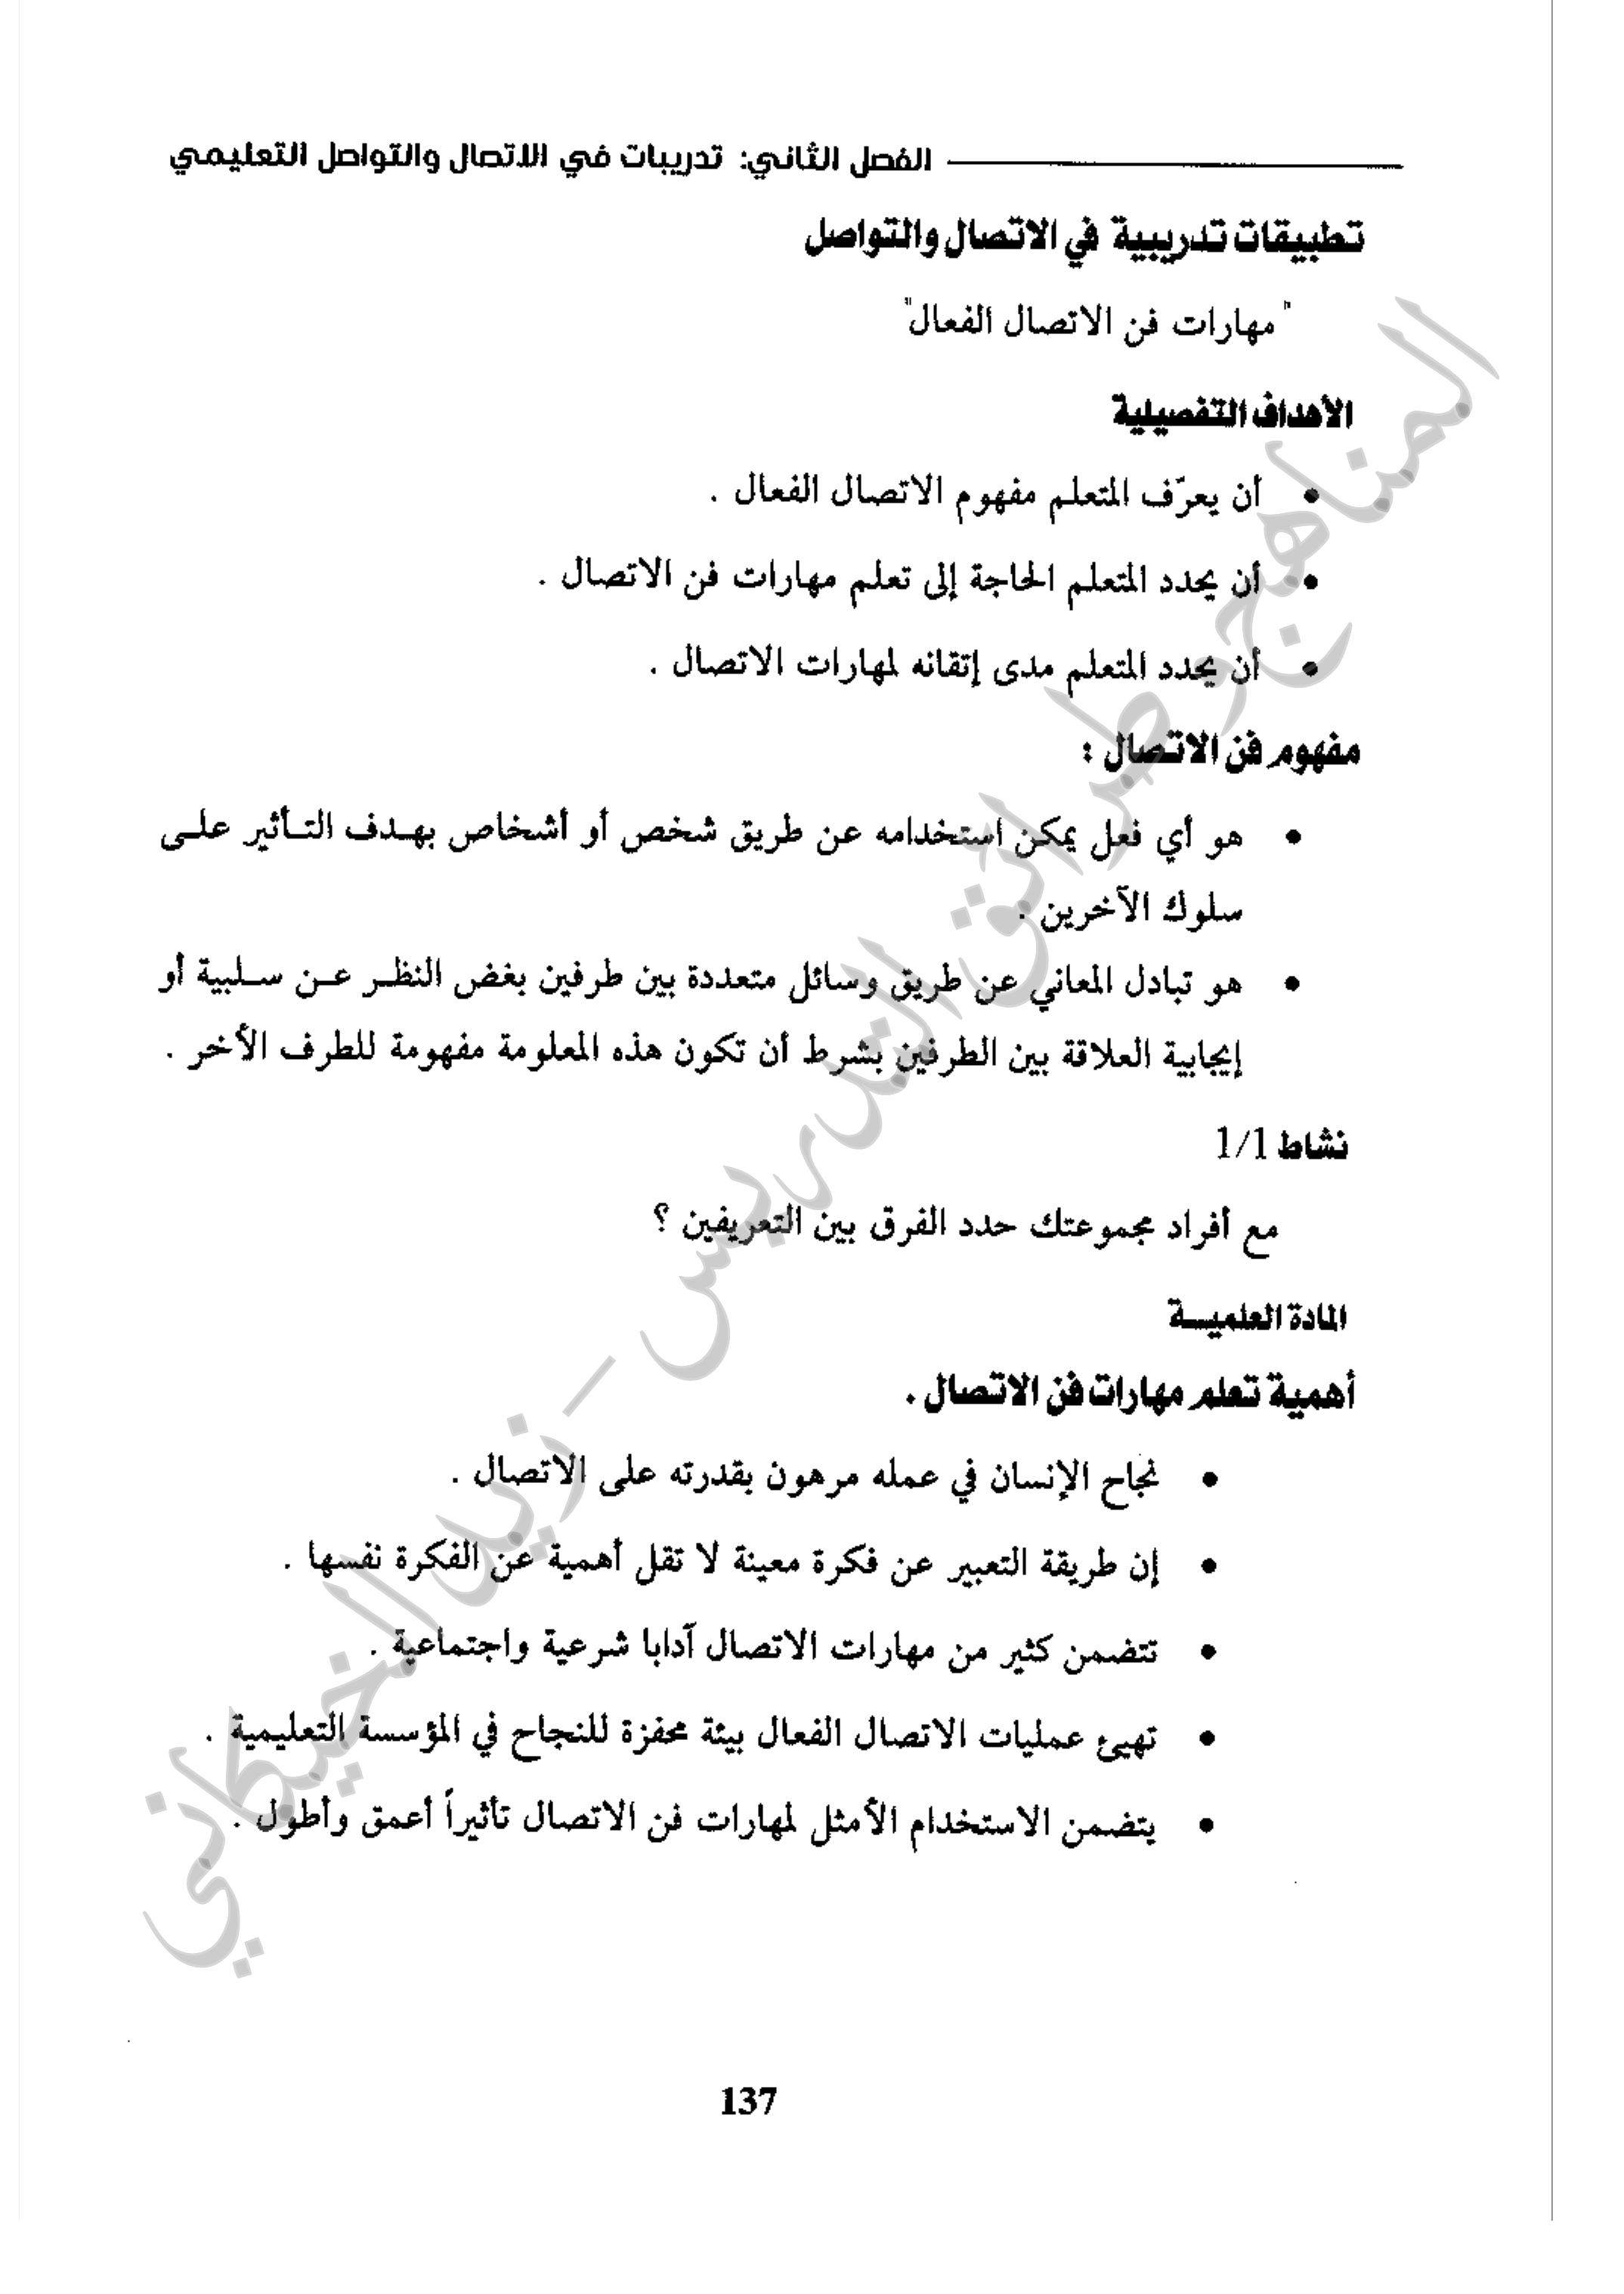 الفصل الثاني: تدريبات في الاتصال والتواصل التعليمي
تطبيقات تدريبية في الاتصال والتواصل
" مهارات فن الاتصال الفعال"
الأهداف التفصيلية
• أن يعرّف المتعلم مفهوم الاتصال الفعال .
• أن يحدد المتعلم الحاجة إلى تعلم مهارات فن الاتصال .
• أن يحدد المتعلم مدى إتقانه لمهارات الاتصال .
مفهوم فن الاتصال :
• هو أي فعل يمكن استخدامه عن طريق شخص أو أشخاص بهدف التأثير على
سلوك الآخرين .
• هو تبادل المعاني عن طريق وسائل متعددة بين طرفين بغض النظر عن سلبية أو
إيجابية العلاقة بين الطرفين بشرط أن تكون هذه المعلومة مفهومة للطرف الأخر .
نشاط 1/1
مع أفراد مجموعتك حدد الفرق بين التعريفين ؟
المادة العلمية
أهمية تعلم مهارات فن الاتصال .
• نجاح الإنسان في عمله مرهون بقدرته على الاتصال .
• إن طريقة التعبير عن فكرة معينة لا تقل أهمية عن الفكرة نفسها .
• تتضمن كثير من مهارات الاتصال آدابا شرعية واجتماعية .
• تهيئ عمليات الاتصال الفعال بيئة محفزة للنجاح في المؤسسة التعليمية .
• يتضمن الاستخدام الأمثل لمهارات فن الاتصال تأثيراً أعمق وأطول .
المناهج وطرائق التدريس - زيد الخيكاني
137